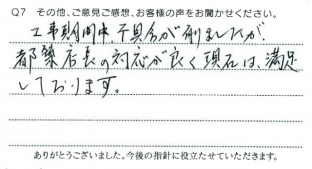 Q7 その他、ご意見ご感想、お客様の声をお聞かせください。
工事期間中、不具合が制ましたが
都築店長の対応が良く現在は、満足
しております。
ありがとうございました。今後の指針に役立たせていただきます。